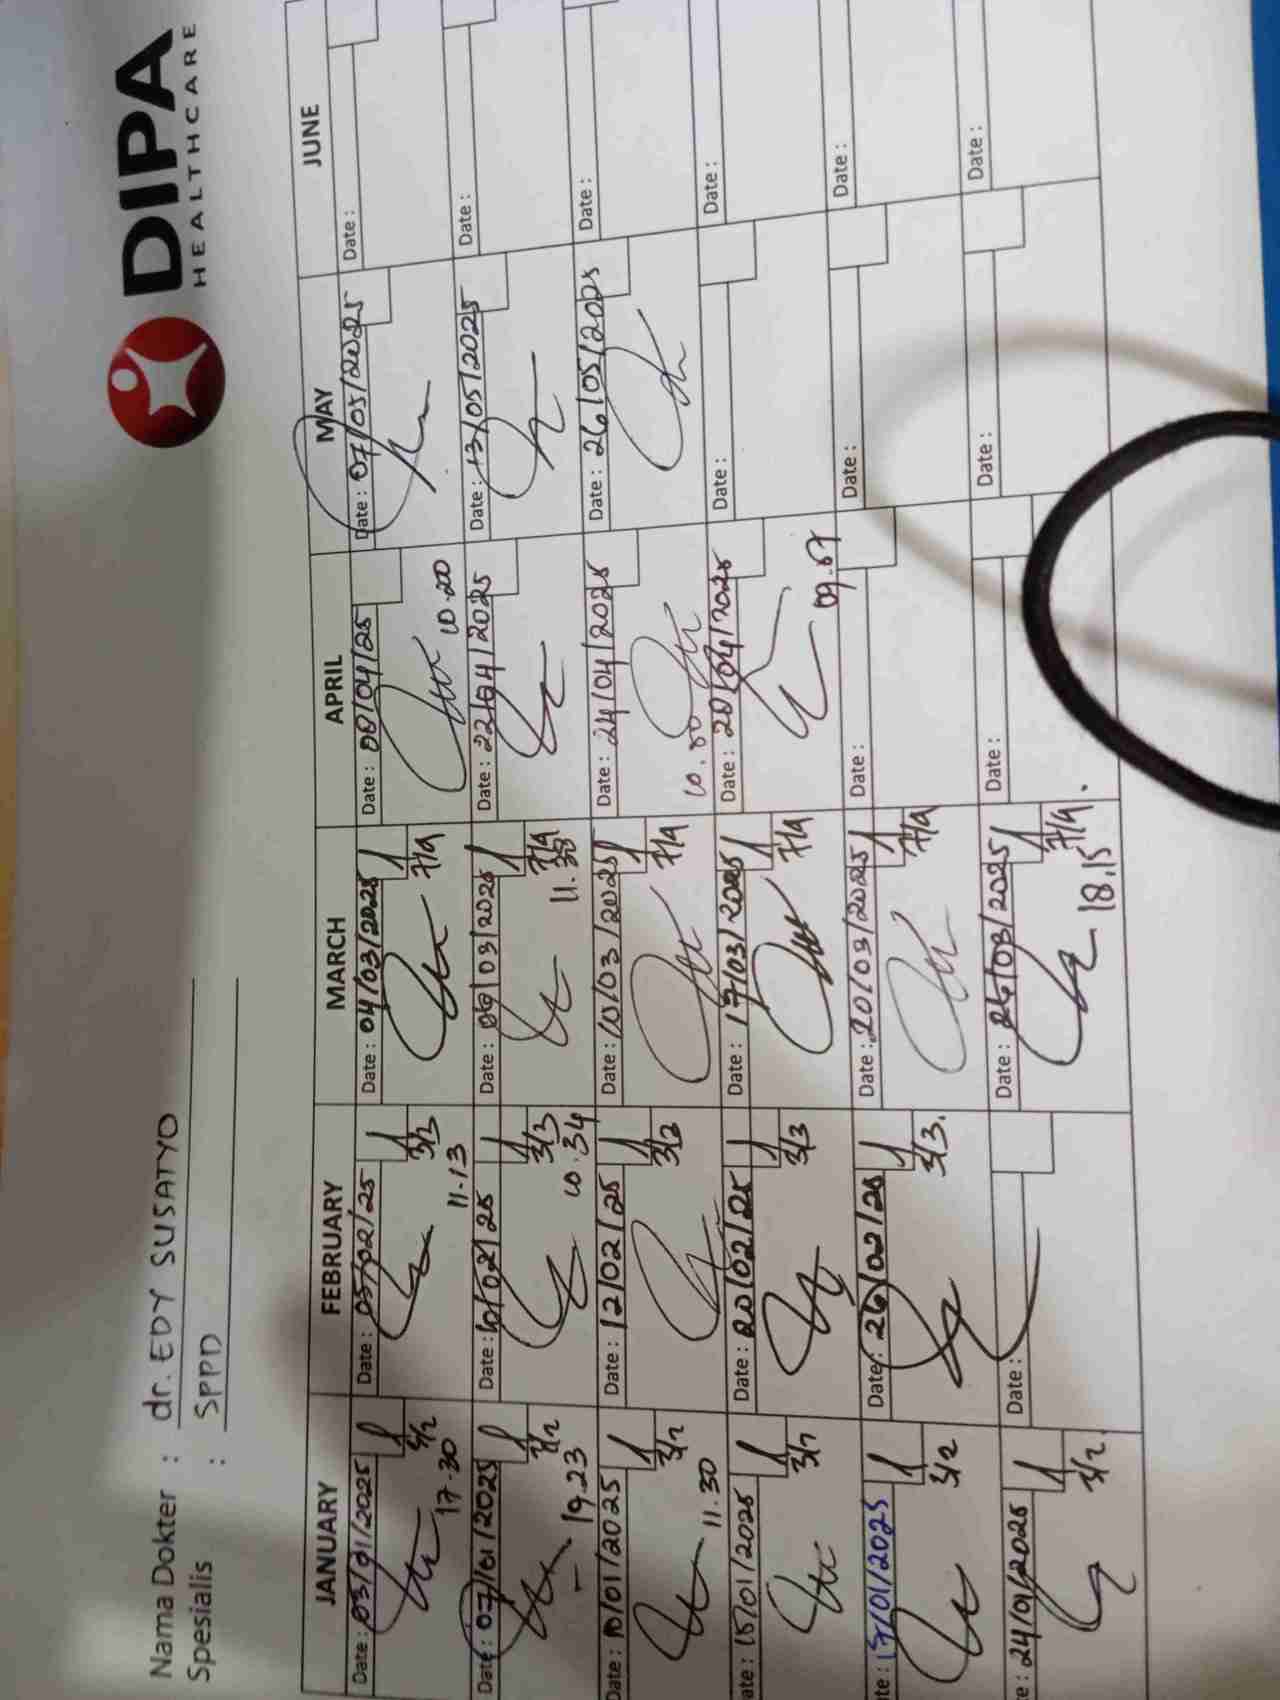 DIPA
HEALTHCARE
Nama Dokter : dr. EDY SUSATYO
Spesialis : SPPD
JANUARY FEBRUARY MARCH APRIL MAY JUNE
Date : 03/01/2025 Date : 05/02/25 Date : 04/03/2025 Date : 08/04/25 Date : 07/05/2025 Date :
3/2 3/3 7/4
17.30 11.13 10.20
Date : 07/01/2025 Date : 10/02/25 Date : 06/03/2025 Date : 22/04/2025 Date : 13/05/2025 Date :
3/2 3/3 7/4
19.23 10.34 11.38
Date : 10/01/2025 Date : 12/02/25 Date : 10/03/2025 Date : 24/04/2025 Date : 26/05/2025 Date :
3/2 3/3 7/4
11.30 10.00
Date : 15/01/2025 Date : 20/02/25 Date : 17/03/2025 Date : 28/04/2025 Date : Date :
3/2 3/3 7/4
09.57
Date : 17/01/2025 Date : 26/02/25 Date : 20/03/2025 Date : Date : Date :
3/2 3/3. 7/4
Date : 24/01/2025 Date : Date : 26/03/2025 Date : Date : Date :
3/2. 7/4.
18.15